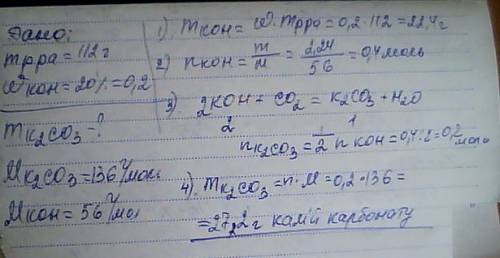 Дано:
mрра = 112 г
Wкон = 20% = 0,2
mK2CO3 - ?
MK2CO3 = 136 г/моль
Mкон = 56 г/мол
1) mкон = W · mрро = 0,2 · 112 = 22,4 г
2) nкон = m/M = 2,24/56 = 0,4 моль
3) 2КОН + CO2 = K2CO3 + H2O
2 1
nK2CO3 = 1/2 n кон = 0,4 : 2 = 0,2 моль
4) mK2CO3 = n · M = 0,2 · 136 =
= 27,2 г калій карбонату